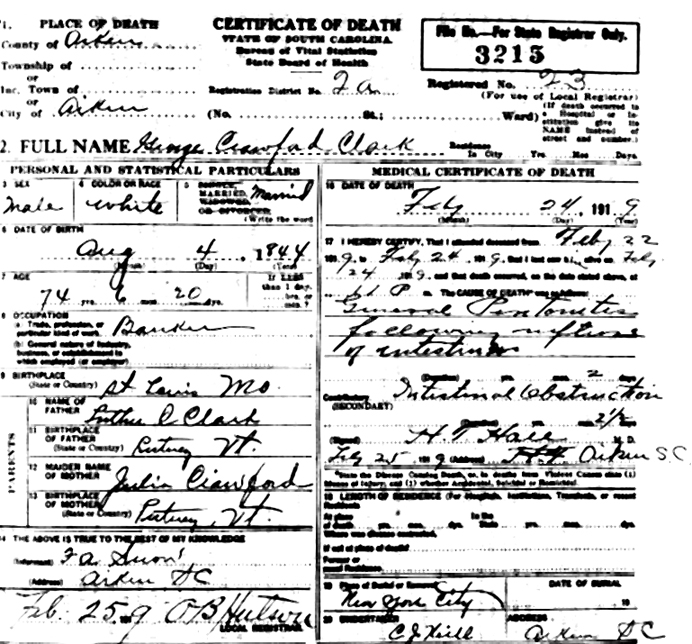 1. PLACE OF DEATH
County of Aiken
Township of
or
Inc. Town of
or
City of Aiken
CERTIFICATE OF DEATH
STATE OF SOUTH CAROLINA
Bureau of Vital Statistics
State Board of Health
Registration District No. 2a
(No. St.; Ward)
File No.—For State Registrar Only.
3215
Registered No. 23
(For use of Local Registrar)
(If death occurred in
a Hospital or In-
stitution give its
NAME instead of
street and number.)
2. FULL NAME George Crawford Clark
Residence
In City Yrs. Mos. Days.
PERSONAL AND STATISTICAL PARTICULARS
3 SEX
Male
4 COLOR OR RACE
White
5 SINGLE,
MARRIED,
WIDOWED,
OR DIVORCED
Married
(Write the word
6 DATE OF BIRTH
Aug 4 1844
(Month) (Day) (Year)
7 AGE
74 yrs. 6 mos. 20 dys.
If LESS
than 1 day,
hrs. or
min.?
8 OCCUPATION
(a) Trade, profession, or
particular kind of work. Banker
(b) General nature of industry,
business, or establishment in
which employed (or employer)
9 BIRTHPLACE
(State or Country) St Louis Mo
PARENTS
10 NAME OF
FATHER Luther C Clark
11 BIRTHPLACE
OF FATHER
(State or Country) Putney Vt.
12 MAIDEN NAME
OF MOTHER Julia Crawford
13 BIRTHPLACE
OF MOTHER
(State or Country) Putney Vt.
14 THE ABOVE IS TRUE TO THE BEST OF MY KNOWLEDGE
(Informant) F.A.
(Address) Aiken SC
Feb 25 1919 O B Hutson
LOCAL REGISTRAR
MEDICAL CERTIFICATE OF DEATH
16 DATE OF DEATH
Feby 24, 1919
(Month) (Day) (Year)
17 I HEREBY CERTIFY, That I attended deceased from Feby 22
1919 to Feby 24 1919, that I last saw him alive on Feby
24 1919 and that death occurred, on the date stated above, at
11 P m. The CAUSE OF DEATH* was as follows:
General Peritonitis
following rupture
of intestines
(Duration) yrs. mos. 2 days
Contributory Intestinal Obstruction
(SECONDARY)
(Duration) yrs. mos. 2½ dys.
(Signed) H T Hall M.D.
Feby 25 1919 (Address) Aiken S.C.
*State the Disease Causing Death, or, in deaths from Violent Causes state (1)
Means of Injury, and (2) whether Accidental, Suicidal or Homicidal.
18 LENGTH OF RESIDENCE (For Hospitals, Institutions, Transients, or recent
Residents
At place In the
of death yrs. mos. dys. State yrs. mos. dys.
Where was disease contracted,
If not at place of death?
Former or
usual Residence
19 Place of Burial or Removal
New York City
DATE OF BURIAL
19
20 UNDERTAKER
ADDRESS
Aiken SC